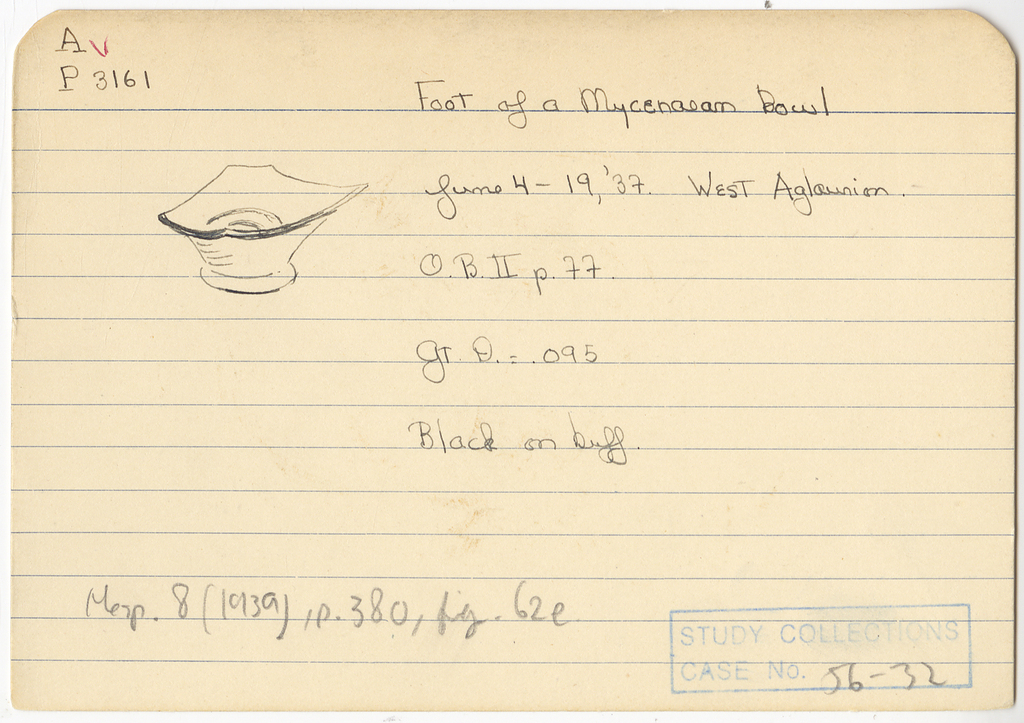 A V
P 3161
Foot of a Mycenaean bowl
June 4-19, '37. WEST Aglaurion.
O.B. II p. 77.
Gr. D. = .095
Black on buff.
Hesp. 8 (1939), p. 380, fig. 62e.
STUDY COLLECTIONS
CASE No. 56-32